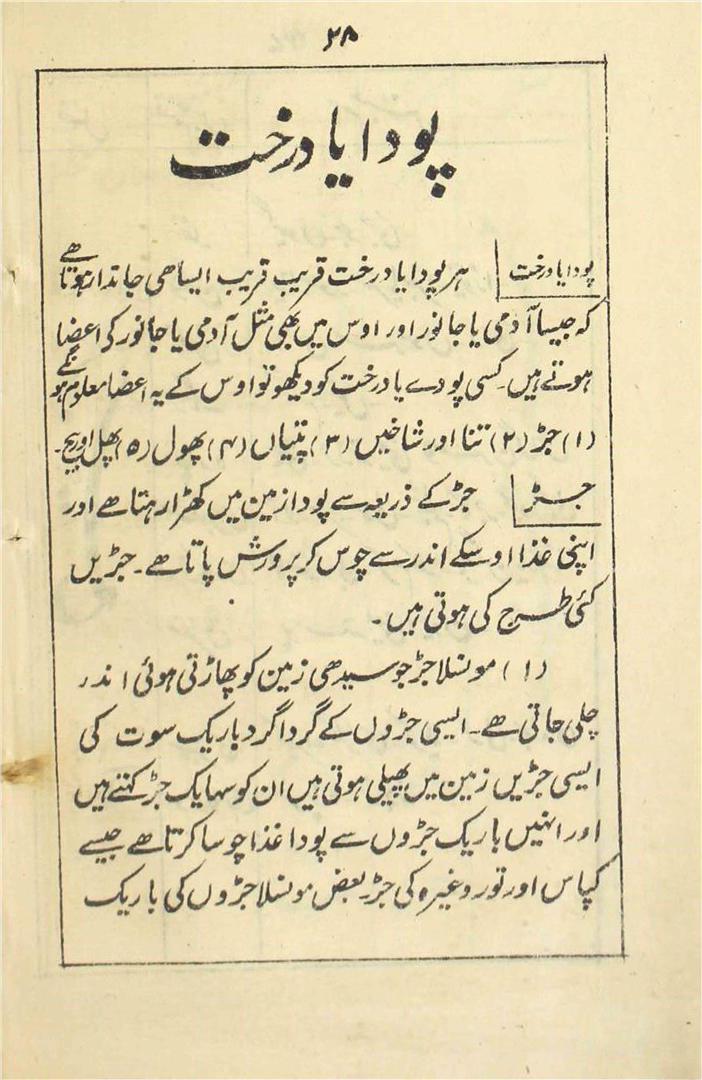 ۲۸
پودا یا درخت
پودا یا درخت ہر پودا یا درخت قریب قریب ایسا ھی جاندار ہوتا ھے
کہ جیسا آدمی یا جانور اور اوس میں بھی مثل آدمی یا جانور کی اعضا
ہوتے ہیں۔ کسی پودے یا درخت کو دیکھو تو اوس کے یہ اعضا معلوم ہونگے
(۱) جڑ (۲) تنا اور شاخیں (۳) پتیاں (۴) پھول (۵) پھل اور بیج۔
جڑ جڑ کے ذریعہ سے پودا زمین میں کھڑا رہتا ھے اور
اپنی غذا اوسکے اندر سے چوس کر پرورش پاتا ھے۔ جڑیں
کئی طرح کی ہوتی ہیں۔
(۱) موسلا جڑ جو سیدھی زمین کو پھاڑتی ہوئی اندر
چلی جاتی ھے۔ ایسی جڑوں کے گرداگرد باریک سوت کی
ایسی جڑیں زمین میں پھیلی ہوتی ہیں ان کو سہایک جڑ کہتے ہیں
اور انہیں باریک جڑوں سے پودا غذا چوسا کرتا ھے جیسے
کپاس اور تور وغیرہ کی جڑ بعض موسلا جڑوں کی باریک